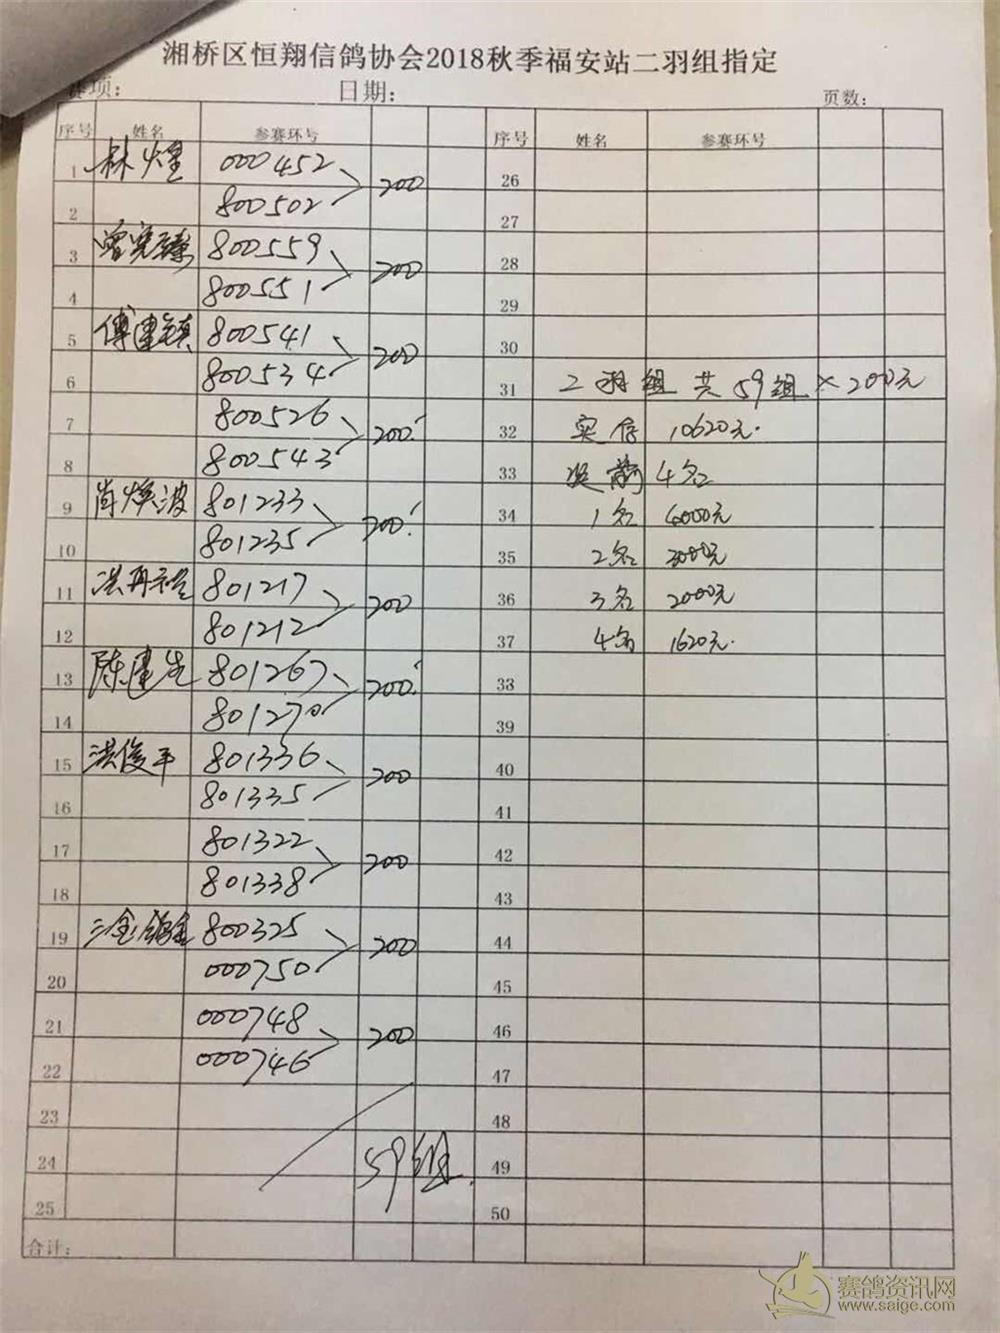 湘桥区恒翔信鸽协会2018秋季福安站二羽组指定
赛项: 日期: 页数:
序号 姓名 参赛环号 序号 姓名 参赛环号
1 林煌 000452 200 26
2 800502 27
3 曾宪臻 800559 200 28
4 800551 29
5 傅建镇 800541 200 30
6 800534 31 二羽组共59组×200元
7 800526 200 32 实存 10620元.
8 800543 33 奖前 4名
9 肖焕波 801233 200 34 1名 4000元
10 801235 35 2名 3000元
11 洪再 801217 200 36 3名 2000元
12 801212 37 4名 1620元.
13 陈建先 801267 200 38
14 801270 39
15 洪俊平 801336 200 40
16 801335 41
17 801322 200 42
18 801338 43
19 三金鸽舍 800325 200 44
20 000750 45
21 000748 200 46
22 000746 47
23 48
24 59组 49
25 50
合计:
赛鸽资讯网
www.saige.com